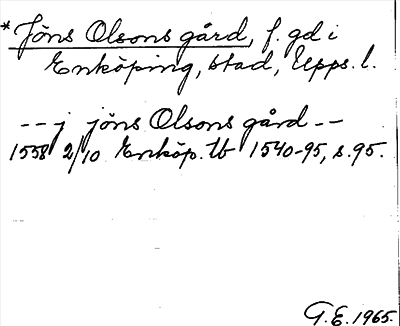 *Jöns Olsons gård, f. gd i
Enköping, stad, Upps. l.
-- j jöns Olsons gård --
1558 2/10 Enköp. tb 1540-95, s. 95.
G.E. 1965.